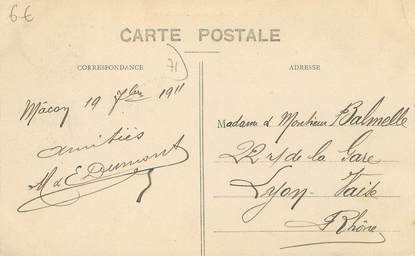 6€
CARTE POSTALE
71
CORRESPONDANCE
ADRESSE
Mâcon 19 7bre 1911
amitiés
M & E Dumont
Madame & Monsieur Balmelle
22 r de la Gare
Lyon-Vaise
Rhône